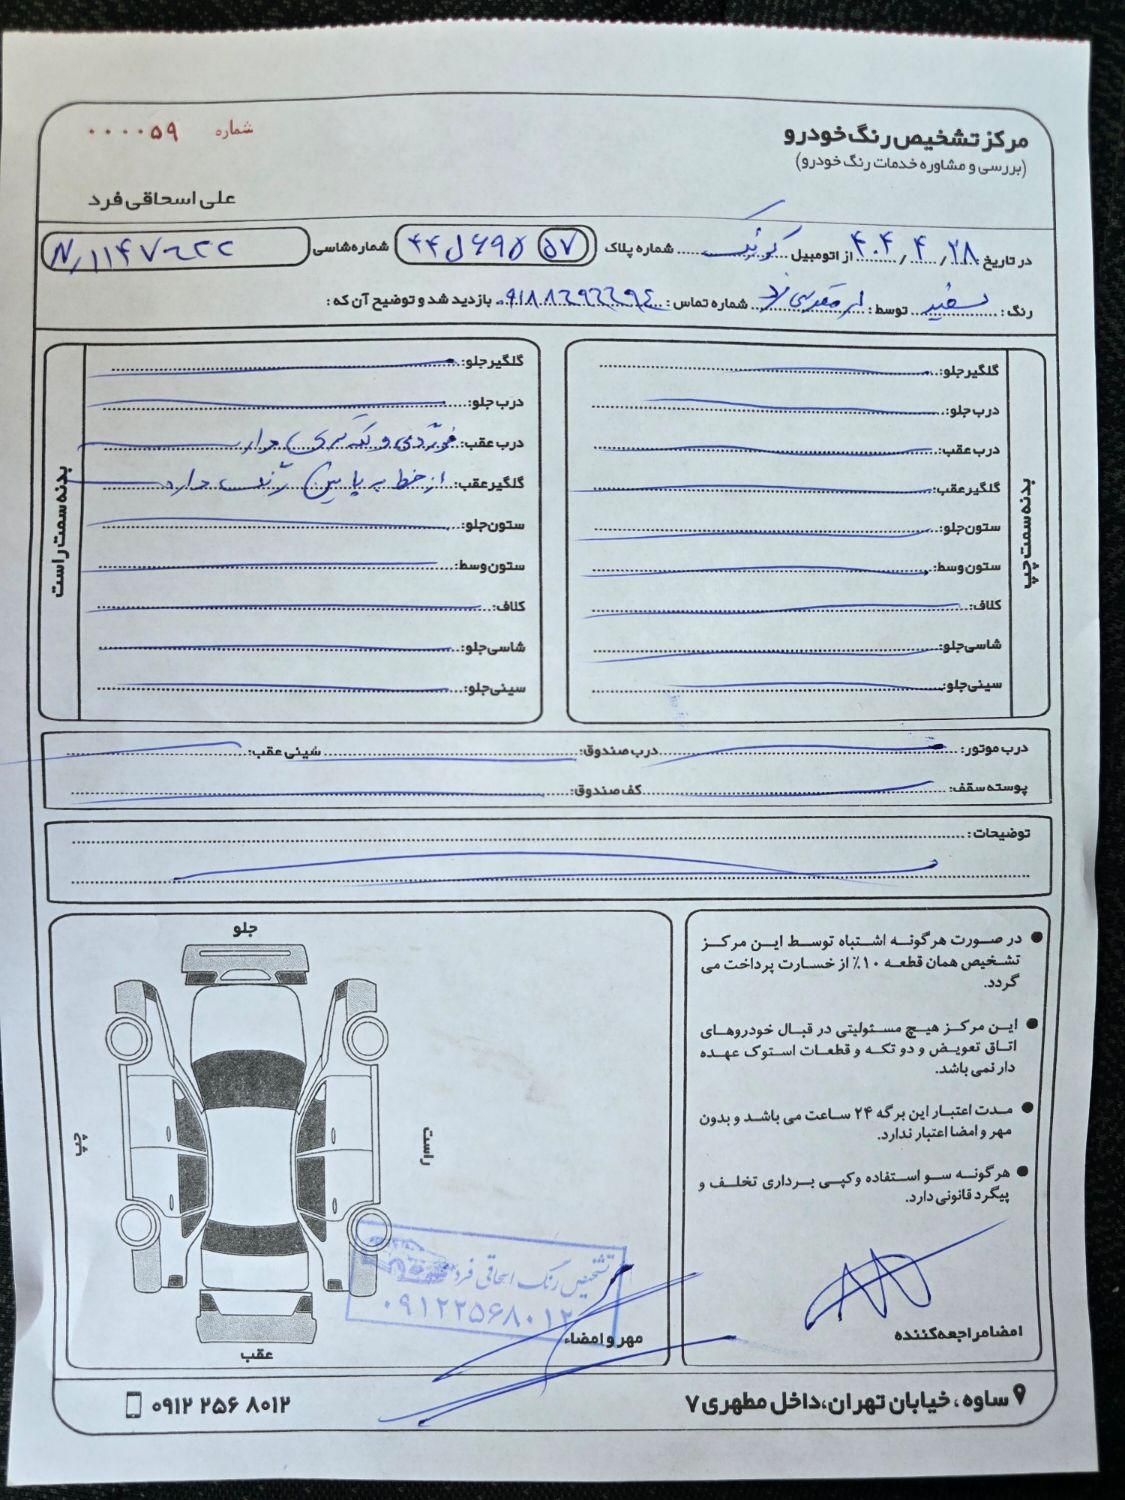 مرکز تشخیص رنگ خودرو
(بررسی و مشاوره خدمات رنگ خودرو)
شماره ۰۰۰۰۵۹
علی اسحاقی فرد
در تاریخ ۴۰۴/۴/۲۸ از اتومبیل کوئیک شماره پلاک ۵۷ ۶۹۵ل۴۴ شماره شاسی
رنگ: سفید توسط: شماره تماس: بازدید شد و توضیح آن که:
بدنه سمت چپ
گلگیر جلو:
درب جلو:
درب عقب:
گلگیر عقب:
ستون جلو:
ستون وسط:
کلاف:
شاسی جلو:
سینی جلو:
بدنه سمت راست
گلگیر جلو:
درب جلو:
درب عقب: و لکه گیری دارد
گلگیر عقب: از خط به پایین رنگ دارد
ستون جلو:
ستون وسط:
کلاف:
شاسی جلو:
سینی جلو:
درب موتور: درب صندوق: شینی عقب:
پوسته سقف: کف صندوق:
توضیحات:
در صورت هرگونه اشتباه توسط این مرکز
تشخیص همان قطعه ۱۰٪ از خسارت پرداخت می
گردد.
این مرکز هیچ مسئولیتی در قبال خودروهای
اتاق تعویض و دو تکه و قطعات استوک عهده
دار نمی باشد.
مدت اعتبار این برگه ۲۴ ساعت می باشد و بدون
مهر و امضا اعتبار ندارد.
هرگونه سو استفاده وکپی برداری تخلف و
پیگرد قانونی دارد.
امضا مراجعه کننده
جلو
چپ
راست
عقب
تشخیص رنگ اسحاقی فرد
۰۹۱۲۲۵۶۸۰۱۲
مهر و امضاء
ساوه، خیابان تهران،داخل مطهری ۷
۰۹۱۲ ۲۵۶ ۸۰۱۲